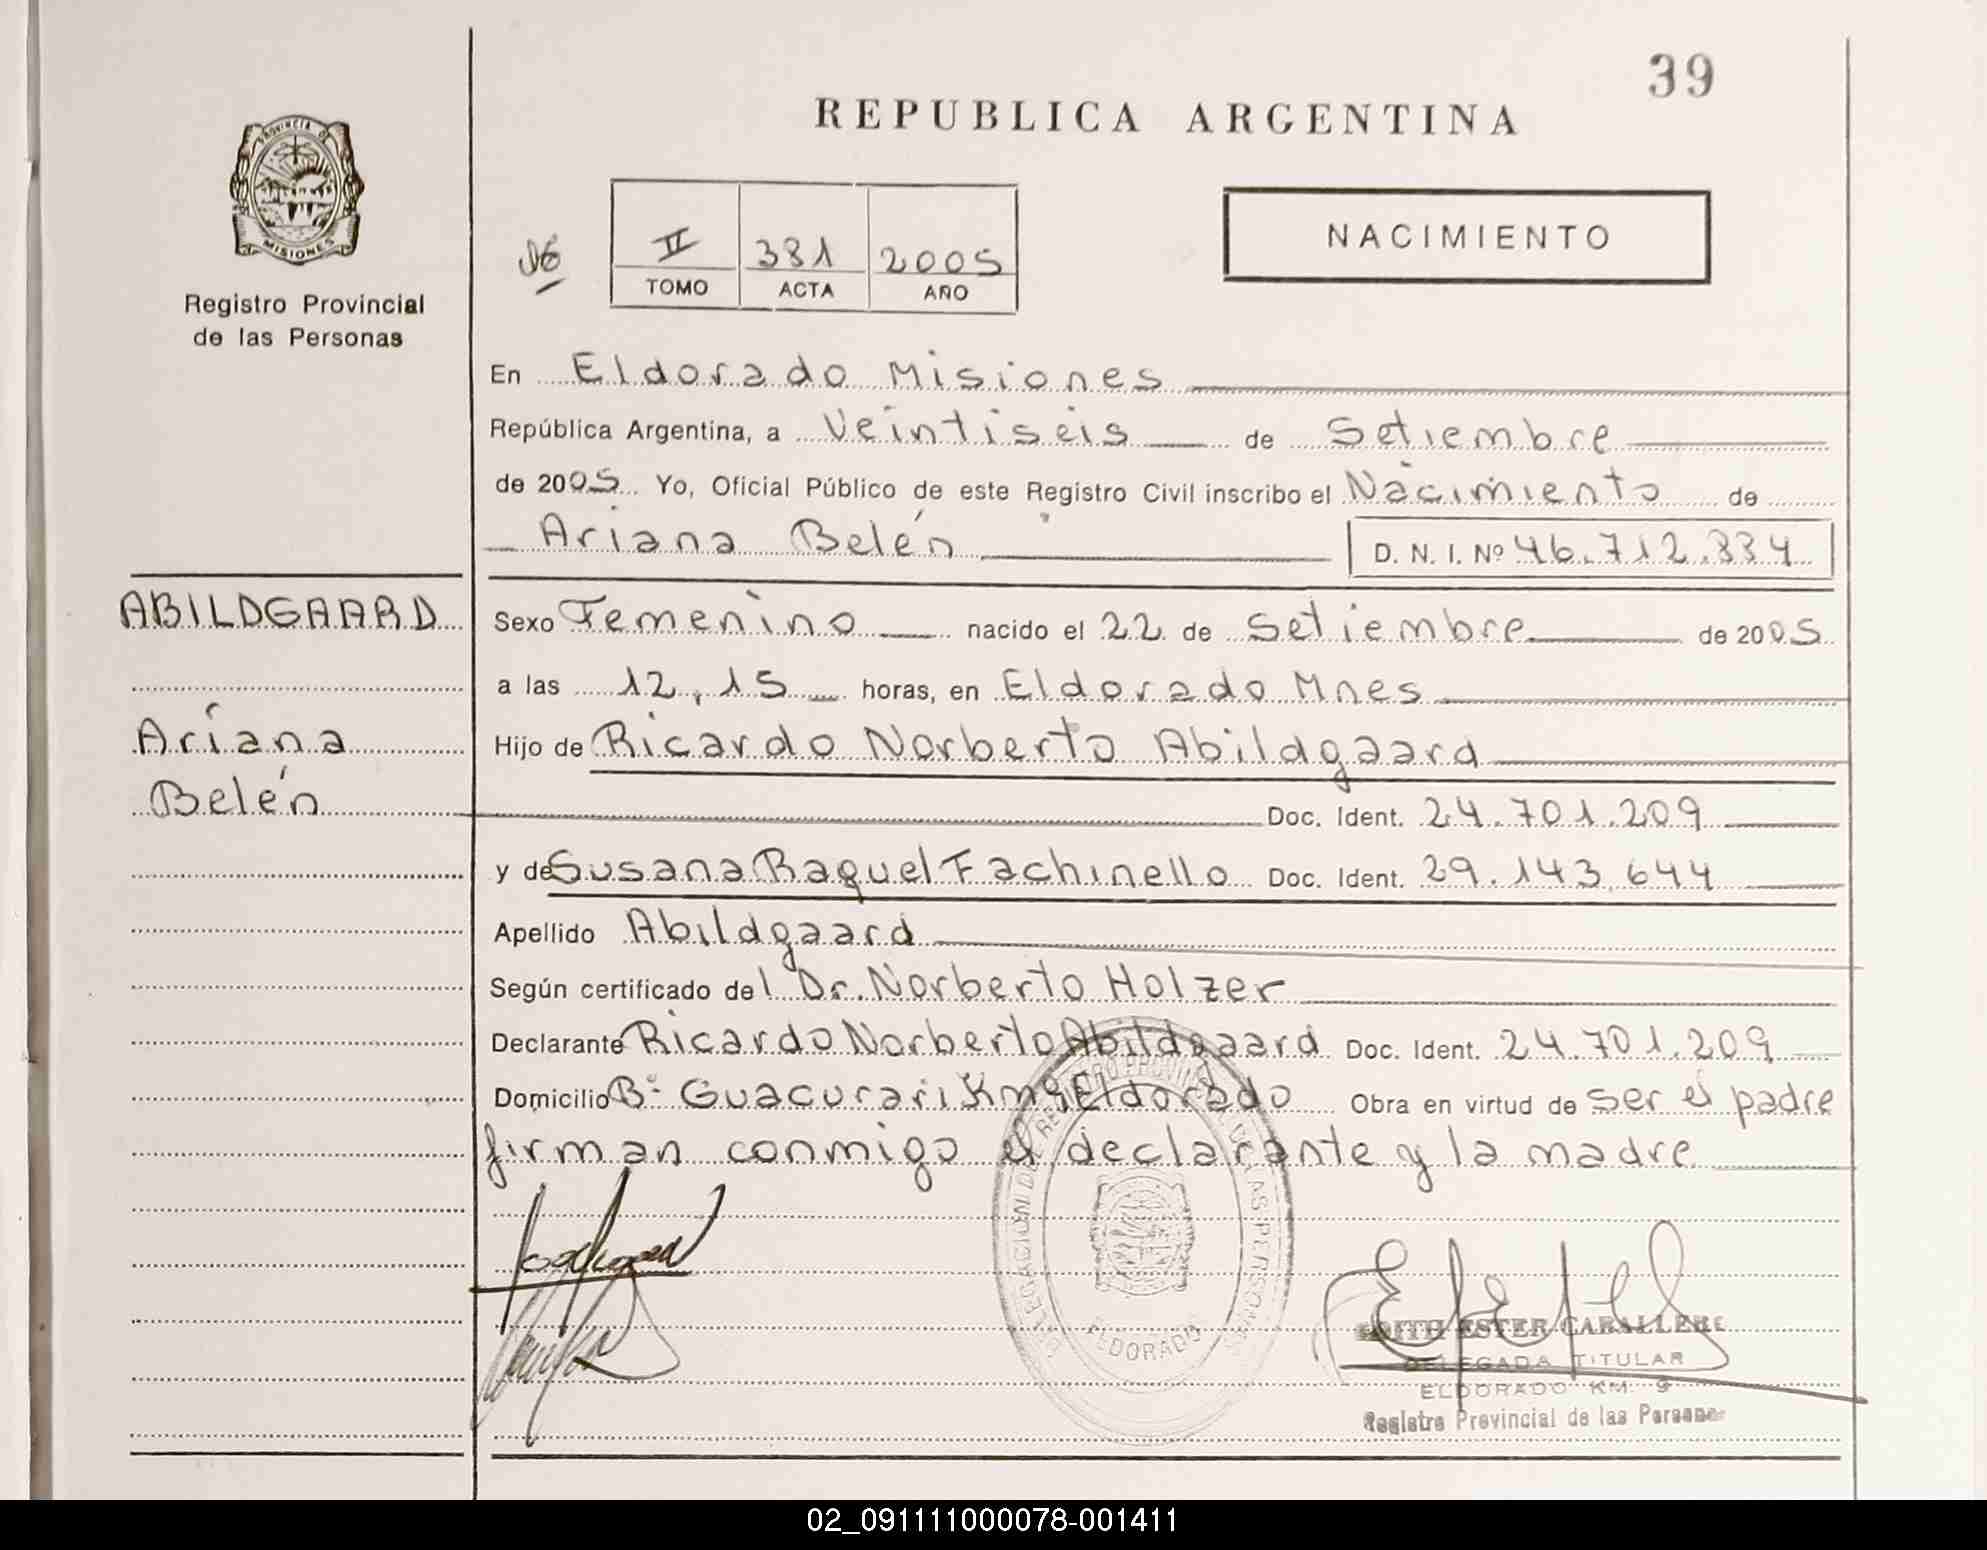 39
REPUBLICA ARGENTINA
PROVINCIA DE
MISIONES
Registro Provincial
de las Personas
II 381 2005
TOMO ACTA AÑO
NACIMIENTO
En Eldorado Misiones
República Argentina, a Veintiseis de Setiembre
de 2005 Yo, Oficial Público de este Registro Civil inscribo el Nacimiento de
Ariana Belén D. N. I. Nº 46.712.334
ABILDGAARD
Ariana
Belén
Sexo Femenino nacido el 22 de Setiembre de 2005
a las 12,15 horas, en Eldorado Mnes
Hijo de Ricardo Norberto Abildgaard
Doc. Ident. 24.701.209
y de Susana Raquel Fachinello Doc. Ident. 29.143.644
Apellido Abildgaard
Según certificado del Dr. Norberto Holzer
Declarante Ricardo Norberto Abildgaard Doc. Ident. 24.701.209
Domicilio Bº Guacurari Km 9 Eldorado Obra en virtud de ser el padre
firman conmigo el declarante y la madre
ELDORADO
EDITH ESTER CABALLERE
DELEGADA TITULAR
ELDORADO KM. 9
Registro Provincial de las Personas
02_091111000078-001411